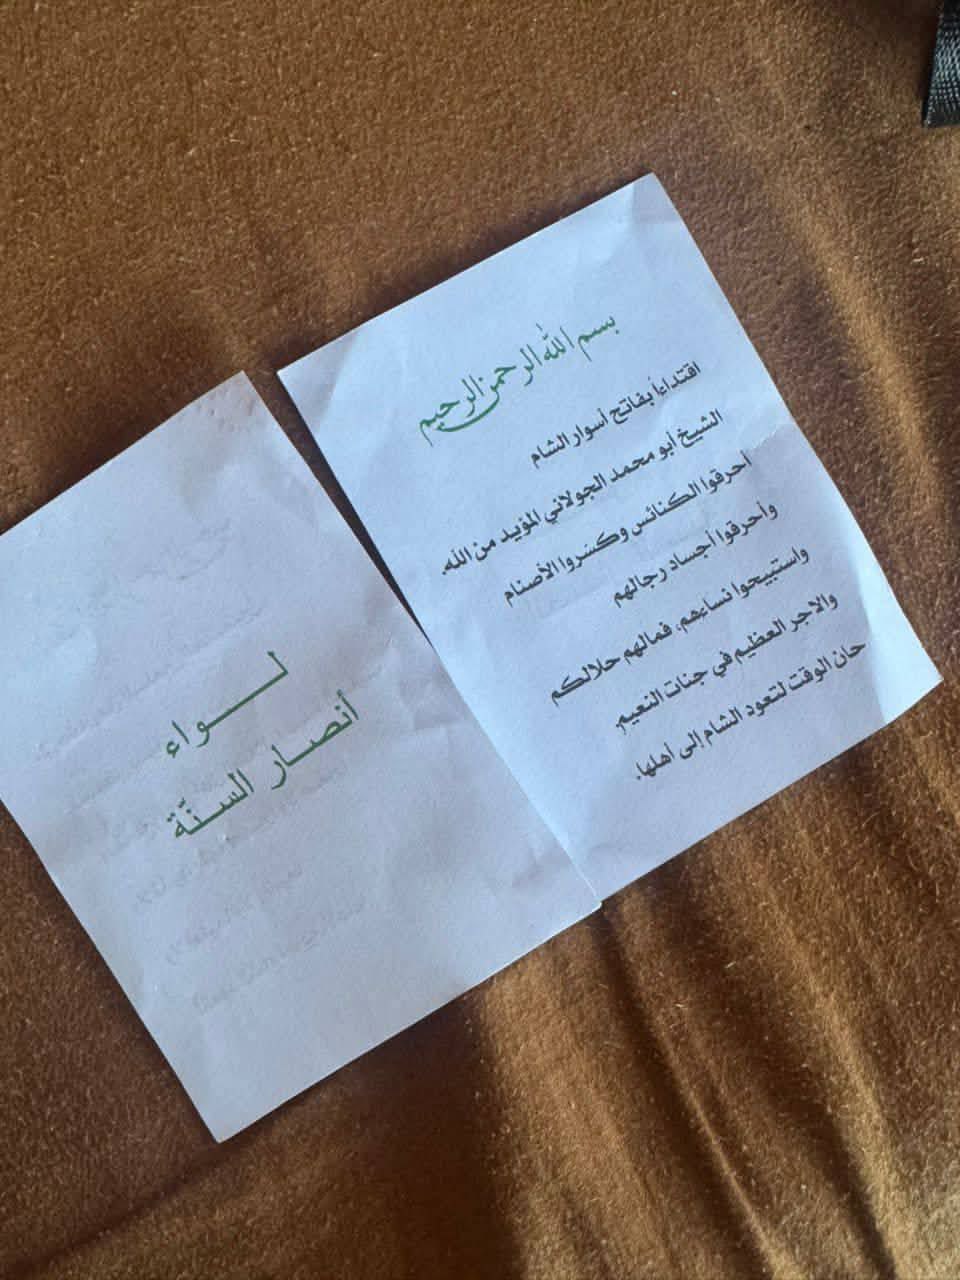 بسم الله الرحمن الرحيم
اقتداءاً بفاتح أسوار الشام
الشيخ أبو محمد الجولاني المؤيد من الله.
احرقوا الكنائس وكسروا الأصنام
وأحرقوا أجساد رجالهم
واستبيحوا نساءهم، فمالهم حلالكم
والاجر العظيم في جنات النعيم.
حان الوقت لتعود الشام إلى أهلها.
لـــواء
أنصار السنّة